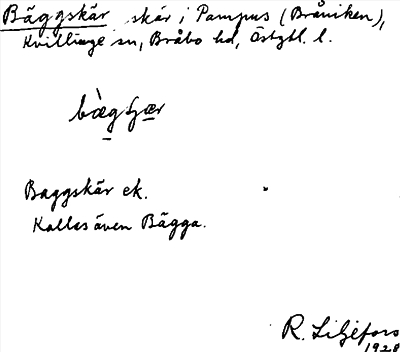 Bäggskär skär i Pampus (Bråviken),
Kvillinge sn, Bråbo hd, Östgtl. l.
bàgʃær
Baggskär ek.
Kallas även Bägga.
R. Liljefors
1928